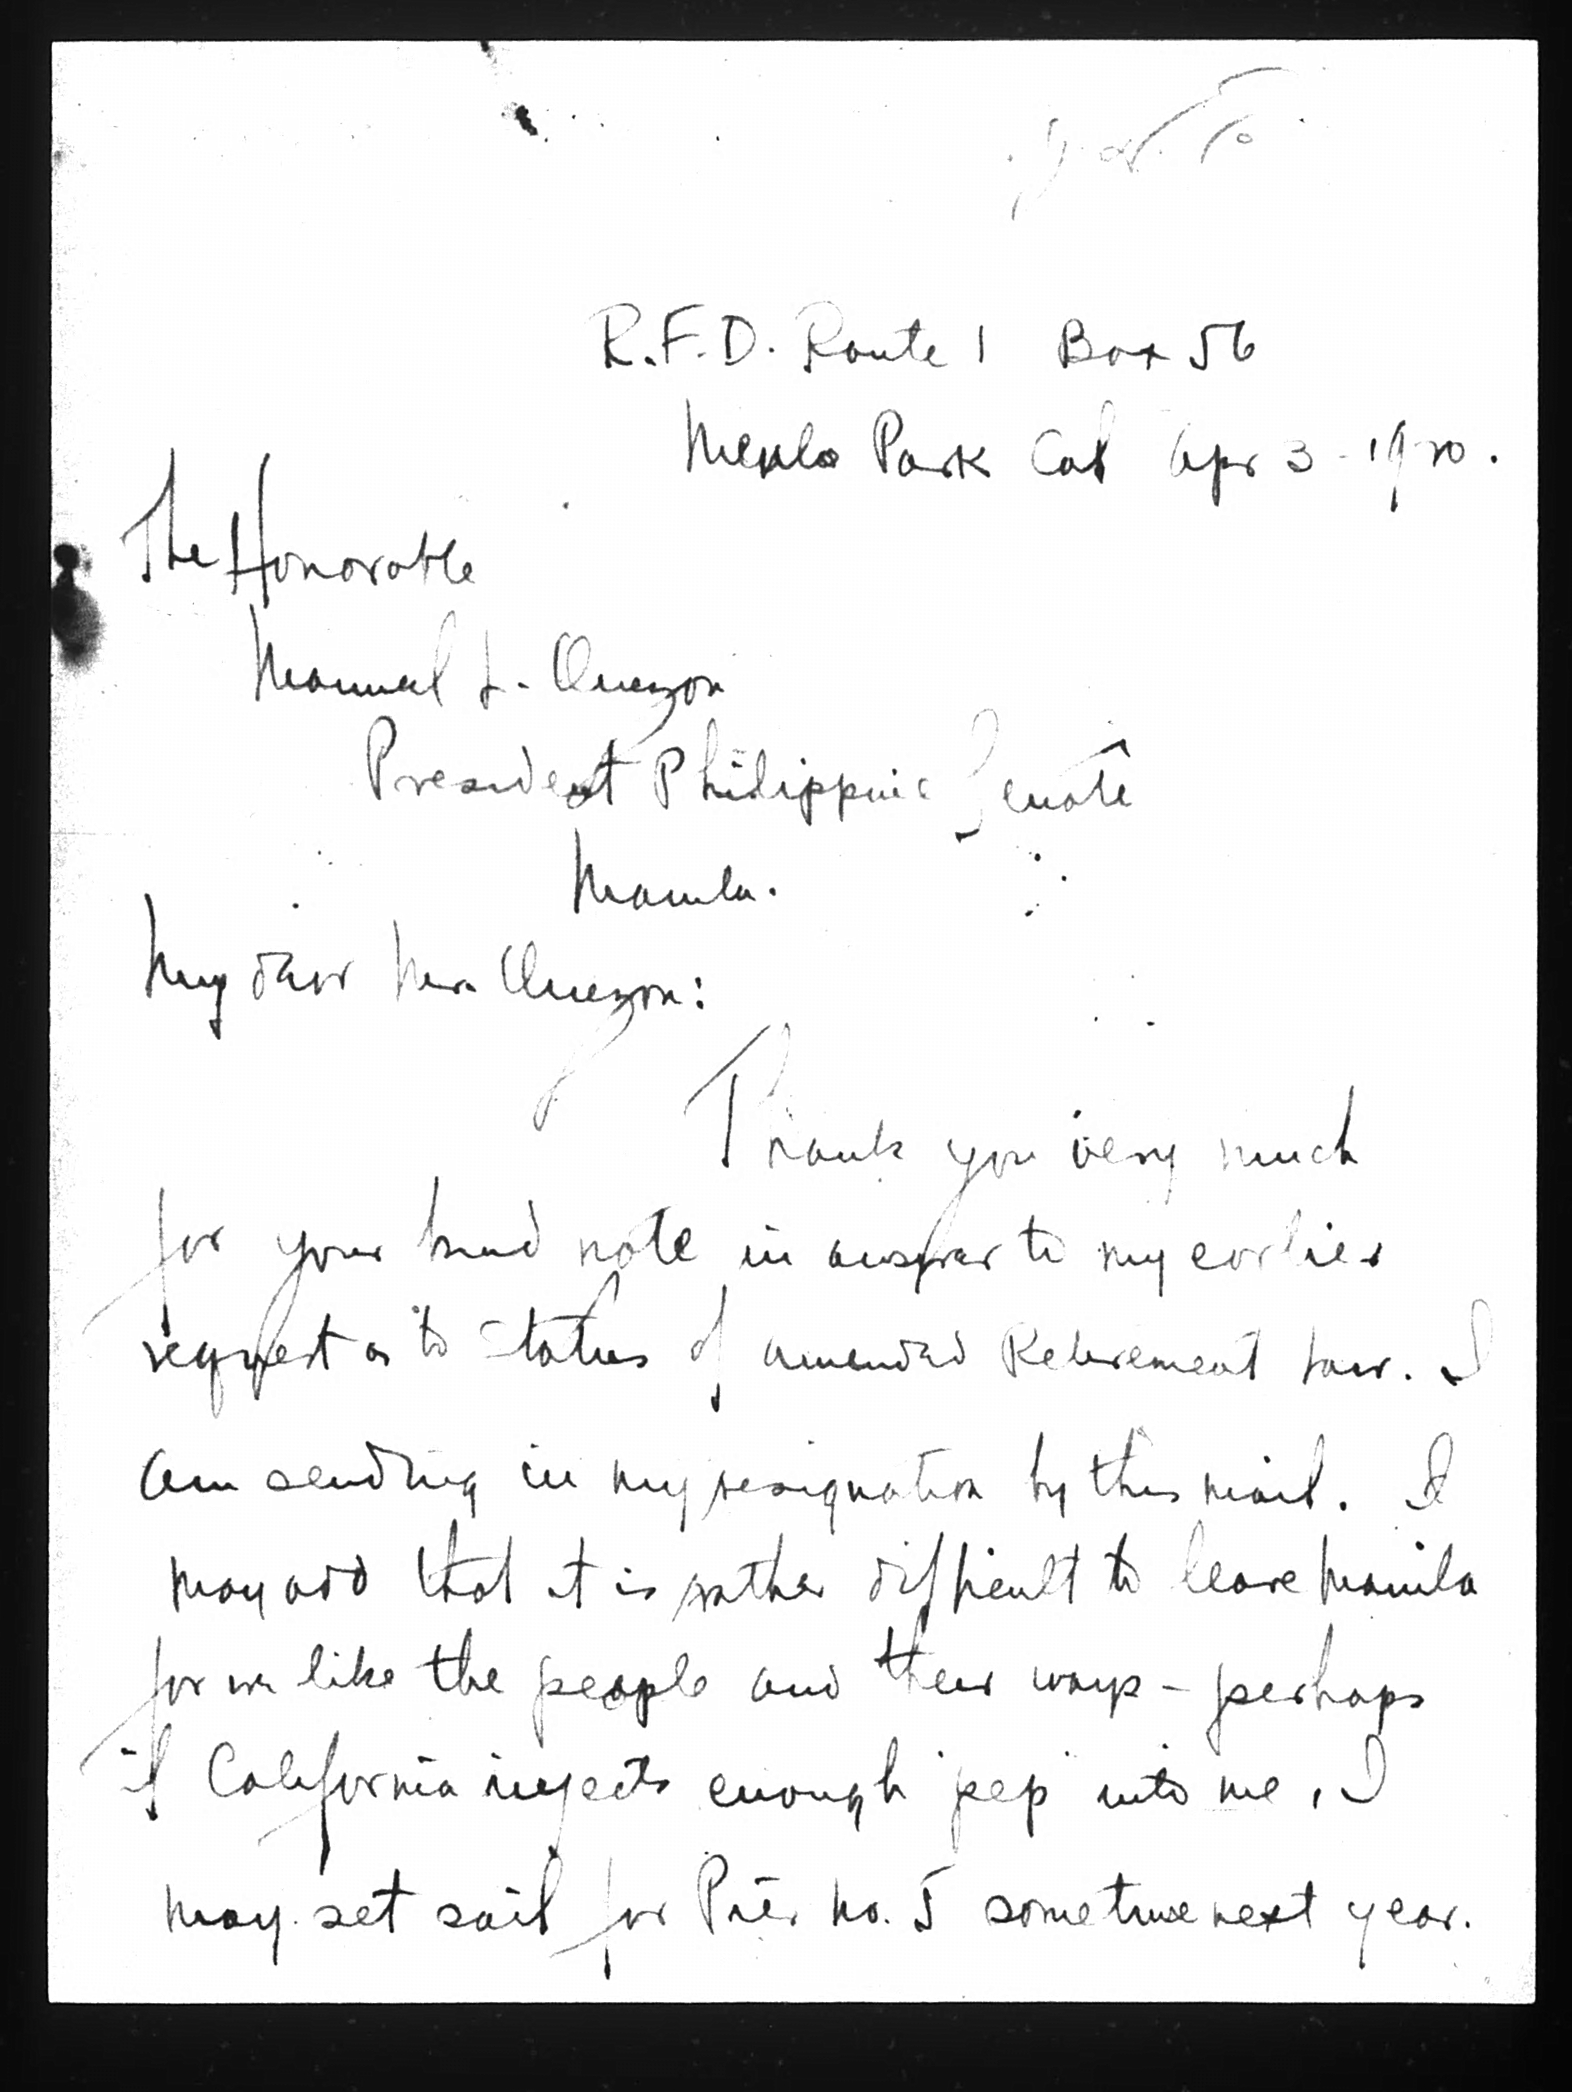 R.F.D. Route 1 Box 56
Menlo Park Cal Apr 3-1920.
The Honorable
Manuel L. Quezon
President Philippine Senate
Manila.
My dear Mr. Quezon:
Thank you very much
for your kind note in answer to my earlier
request as to status of amended Retirement Law. I
am sending in my resignation by this mail. I
may add that it is rather difficult to leave Manila
for we like the people and their ways - perhaps
if California injects enough "pep" into me, I
may set sail for Pier No. 5 sometime next year.